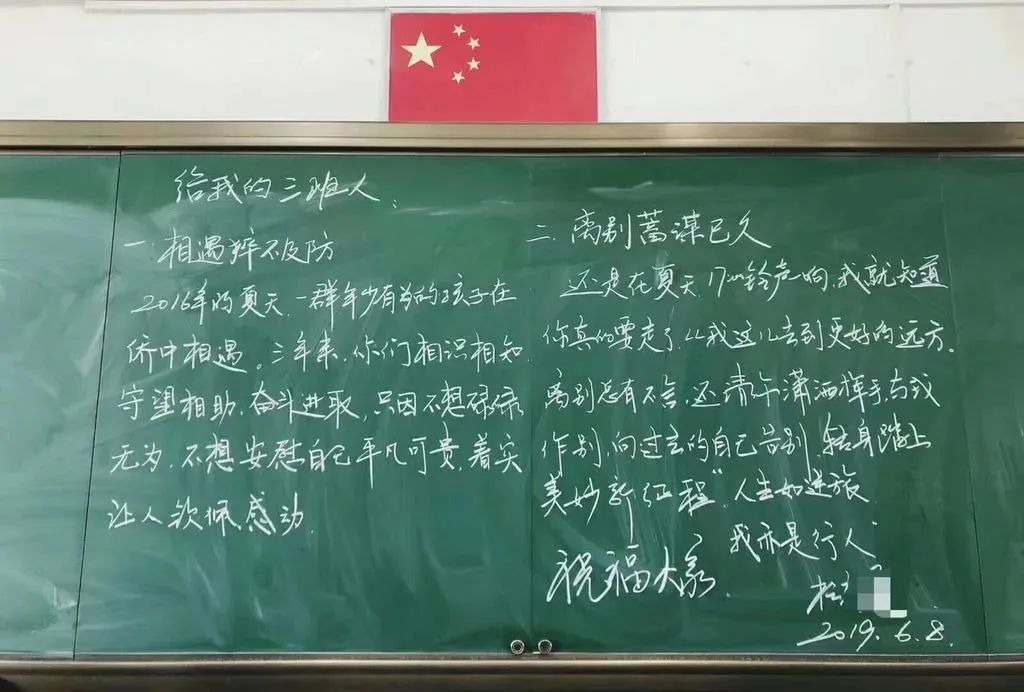 给我的三班人：
一.相遇猝不及防
2016年的夏天，一群年少有为的孩子在
侨中相遇。三年来，你们相识相知，
守望相助，奋斗进取，只因不想碌碌
无为，不想安慰自己平凡可贵，着实
让人钦佩感动。
二.离别蓄谋已久
还是在夏天，17:00铃声响，我就知道
你真的要走了，从我这儿去到更好的远方。
离别总有不舍，还请你潇洒挥手，与我
作别，向过去的自己告别，转身踏上
美妙新征程“人生如逆旅
我亦是行人”
祝福大家.
2019.6.8.